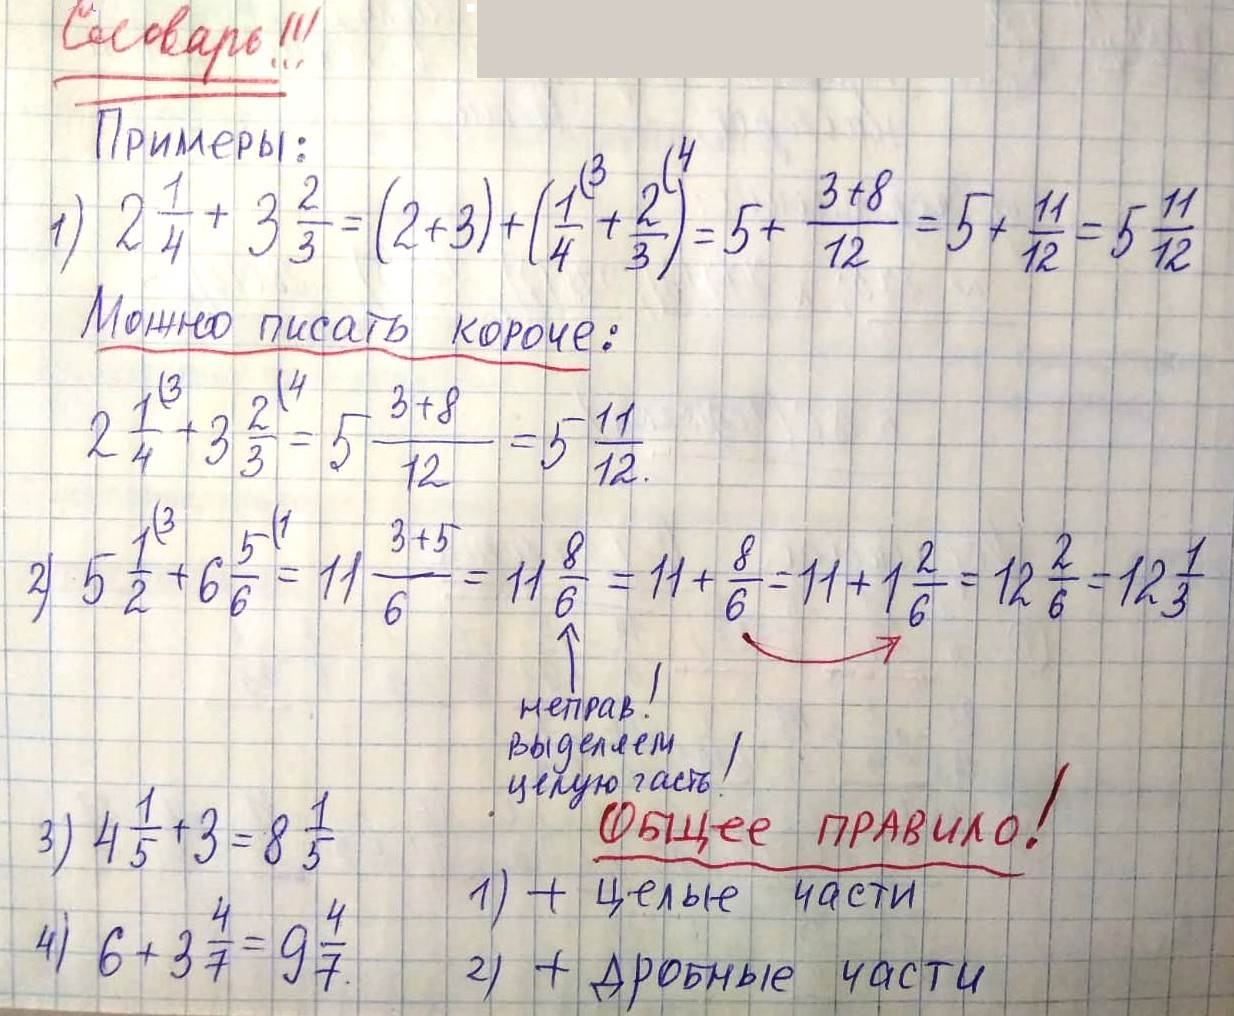 Словарь!!!
Примеры:
1) 2 1/4 + 3 2/3 = (2+3) + (1/4 (3 + 2/3 (4) = 5 + 3+8/12 = 5 + 11/12 = 5 11/12
Можно писать короче:
2 1/4 (3 + 3 2/3 (4 = 5 3+8/12 = 5 11/12.
2) 5 1/2 (3 + 6 5/6 (1 = 11 3+5/6 = 11 8/6 = 11 + 8/6 = 11 + 1 2/6 = 12 2/6 = 12 1/3
неправ!
выделяем
целую часть!
3) 4 1/5 + 3 = 8 1/5
4) 6 + 3 4/7 = 9 4/7.
Общее правило!
1) + целые части
2) + дробные части